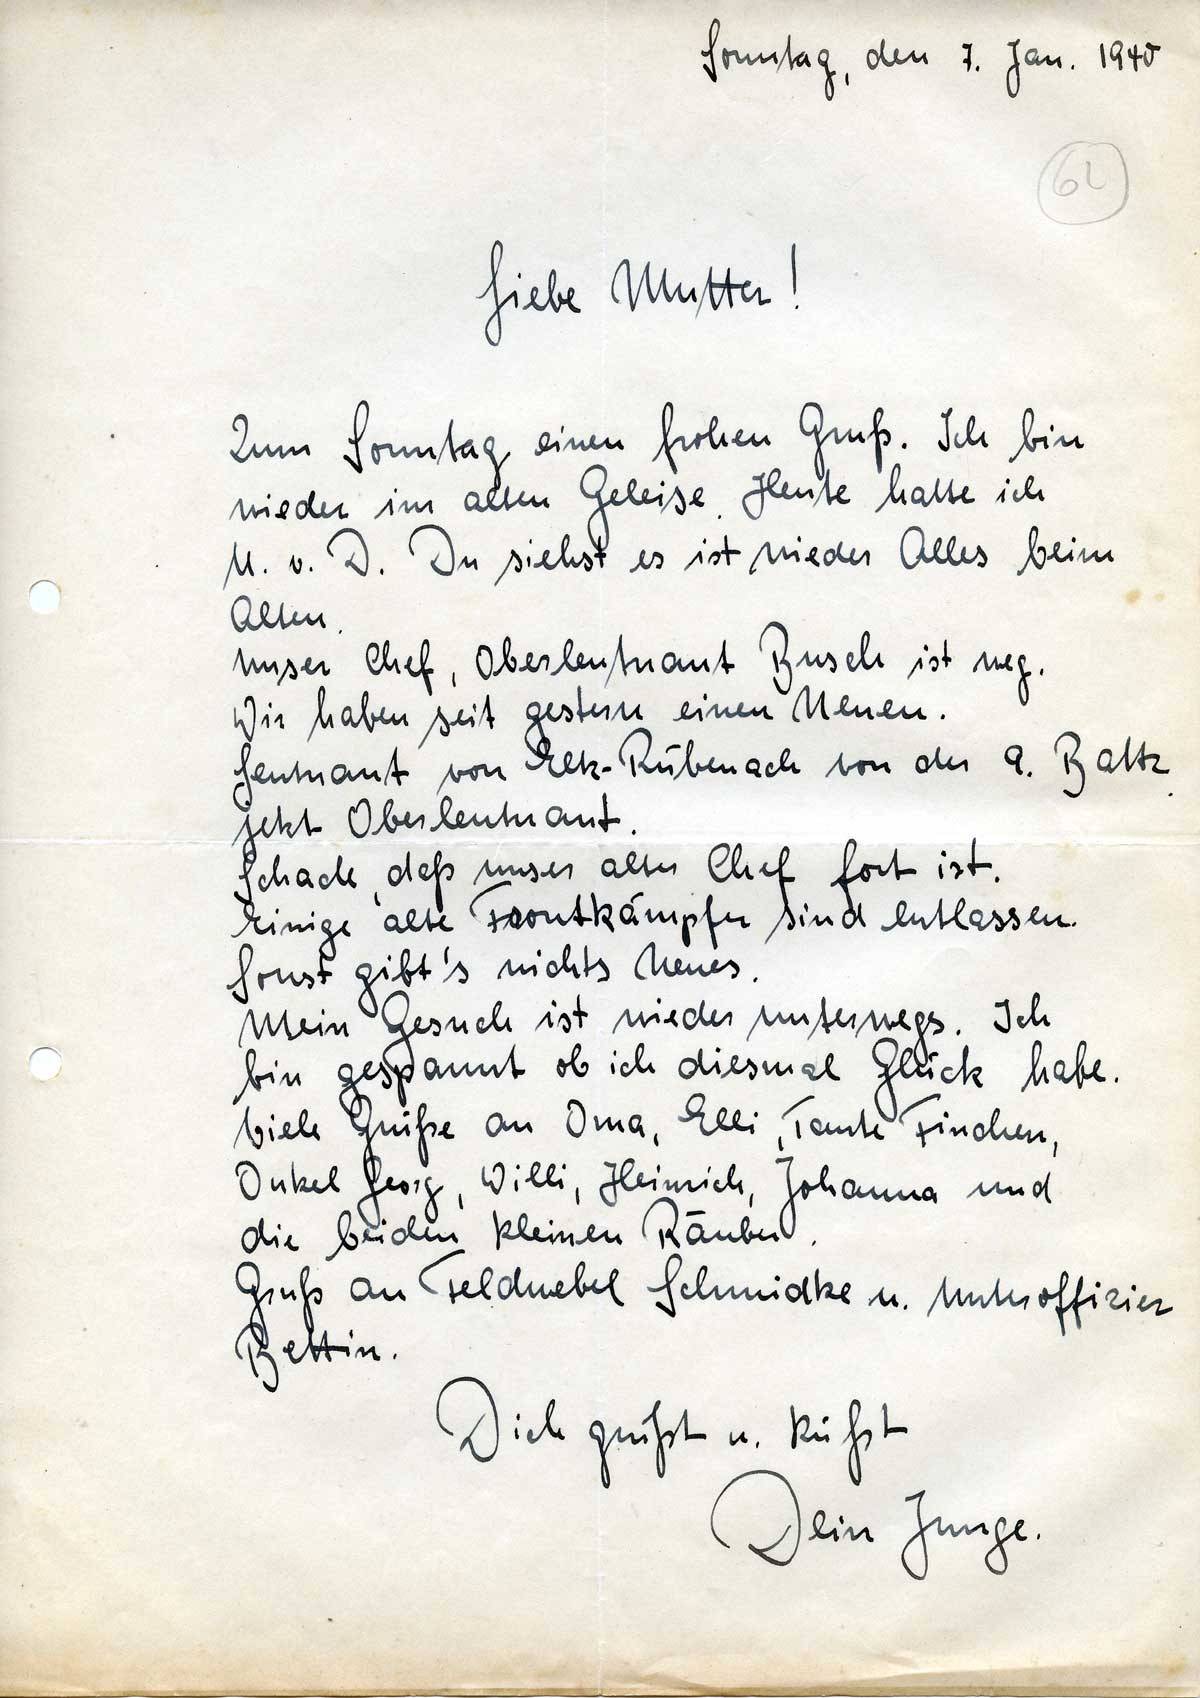 Sonntag, den 7. Jan. 1940
62
Liebe Mutter!
Zum Sonntag einen frohen Gruß. Ich bin
wieder im alten Geleise. Heute hatte ich
U. v. D. Du siehst es ist wieder Alles beim
Alten.
Unser Chef, Oberleutnant Busch ist weg.
Wir haben seit gestern einen Neuen.
Leutnant von Eltz-Rübenach von der 9. Battr.
jetzt Oberleutnant.
Schade, daß unser alter Chef fort ist.
Einige alte Frontkämpfer sind entlassen.
Sonst gibt's nichts Neues.
Mein Gesuch ist wieder unterwegs. Ich
bin gespannt ob ich diesmal Glück habe.
Viele Grüße an Oma, Elli, Tante Finchen,
Onkel Georg, Willi, Heinrich, Johanna und
die beiden kleinen Räuber.
Gruß an Feldwebel Schmidke u. Unteroffizier
Bettin.
Dich grüßt u. küßt
Dein Junge.